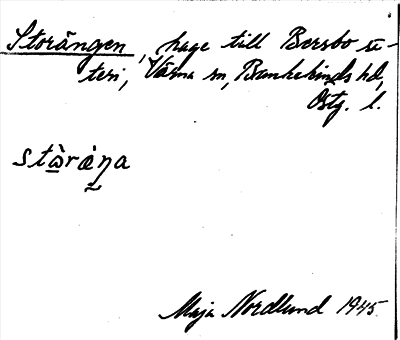 Storängen, hage till Bersbo sä-
teri, Värna sn, Bankekinds hd,
Östg. l.
stò̱ràŋa
Maja Nordlund 1945